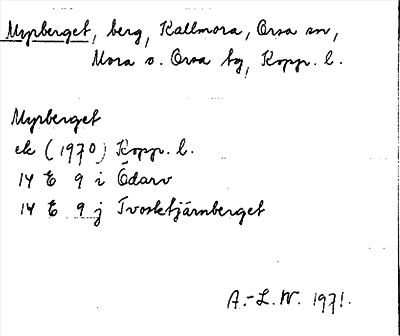 Myrberget, berg, Kallmora, Orsa sn,
Mora o. Orsa tg, Kopp. l.
Myrberget
ek (1970) Kopp. l.
14 E 9 i Ödarv
14 E 9 j Tvosktjärnberget
A.-L. W. 1971.